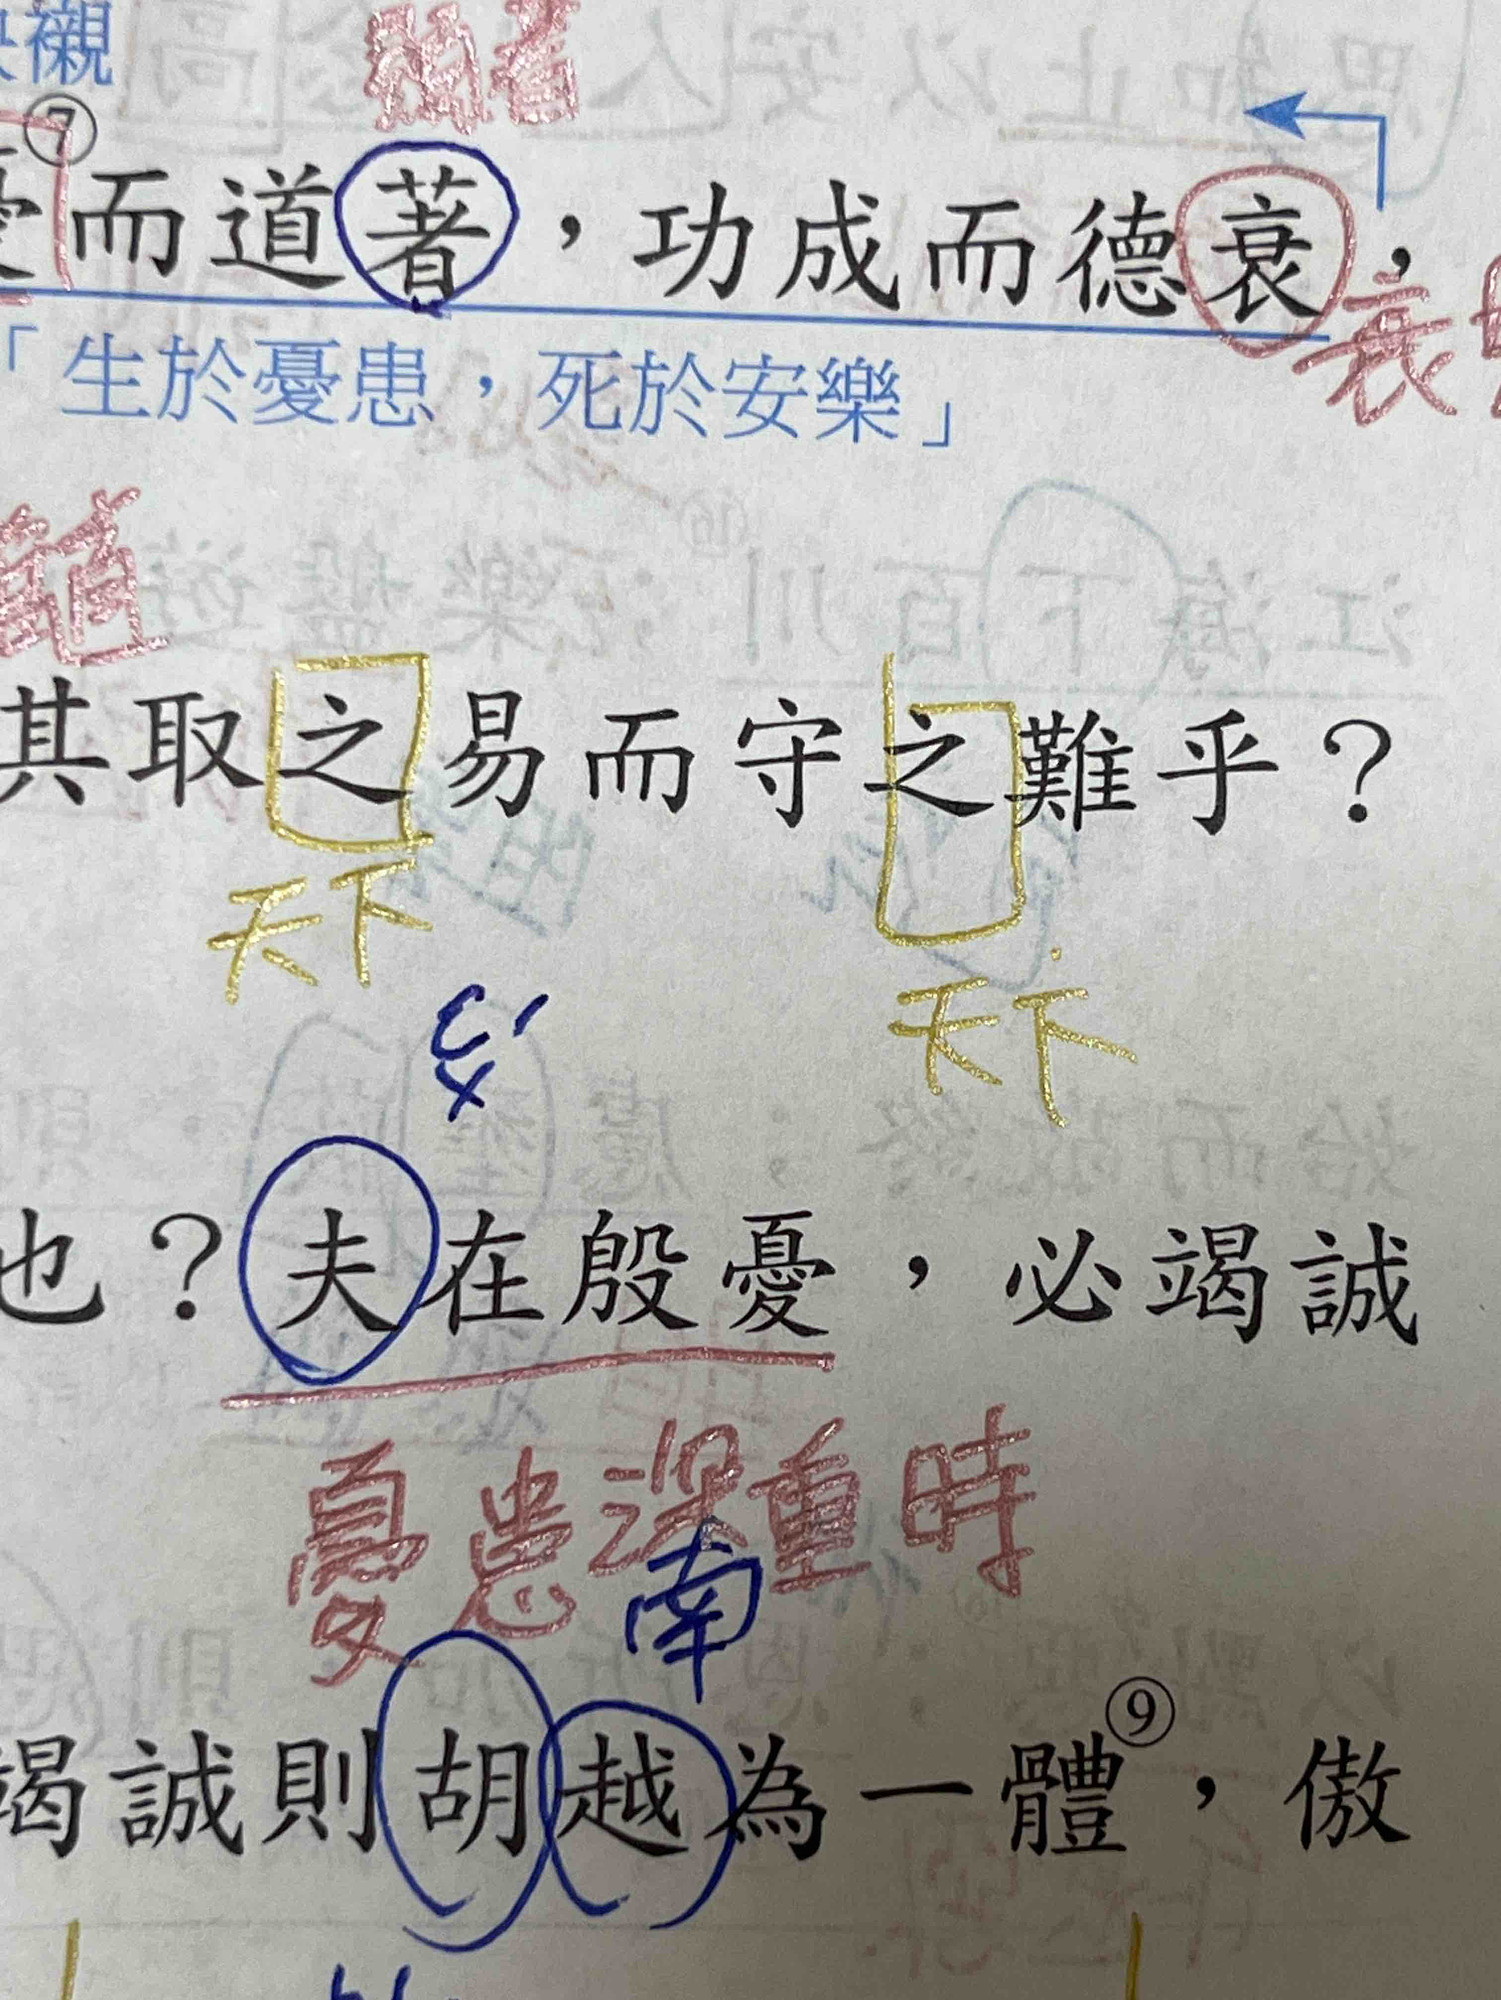 襯
顯著
⑦
而道著，功成而德衰，
衰
「生於憂患，死於安樂」
其取之易而守之難乎？
天下
天下
ㄈㄨˊ
也？夫在殷憂，必竭誠
憂患深重時
南
竭誠則胡越為一體⑨，傲